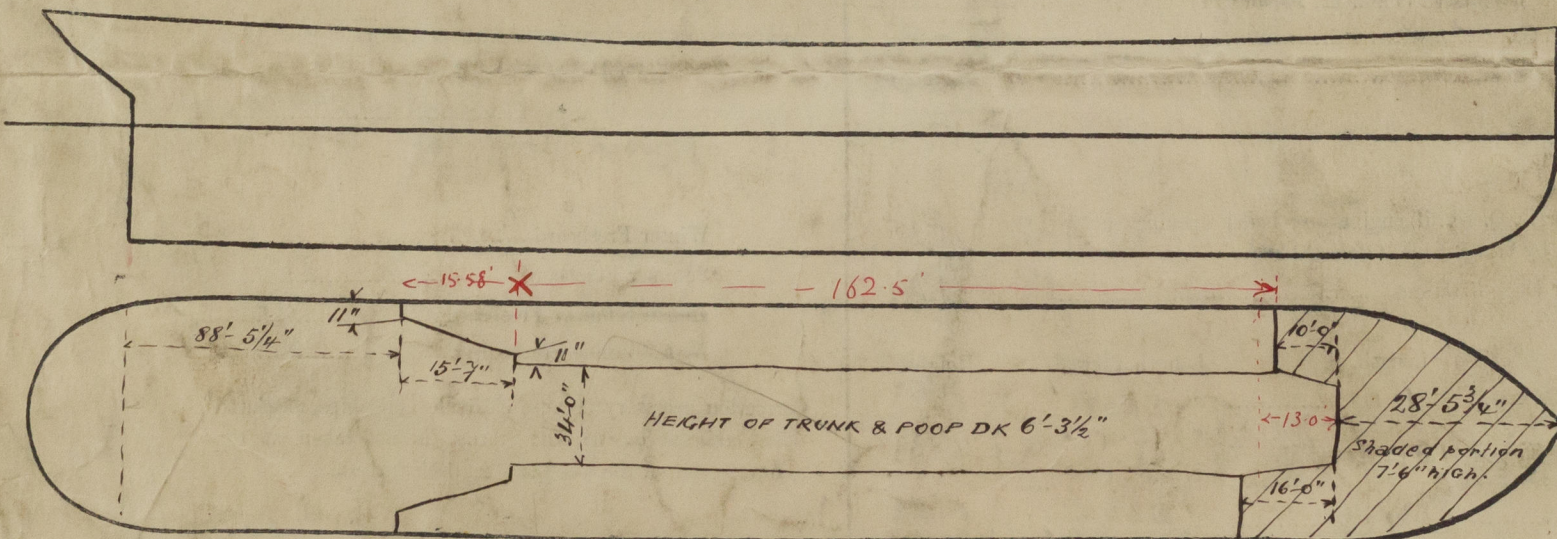 15·58'
162·5'
11"
88'-5¼"
15'-7"
11"
34'-0"
10'-0"
HEIGHT OF TRUNK & POOP DK 6'-3½"
13·0'
28'-5¾"
Shaded portion
7'-6" high.
16'-0"